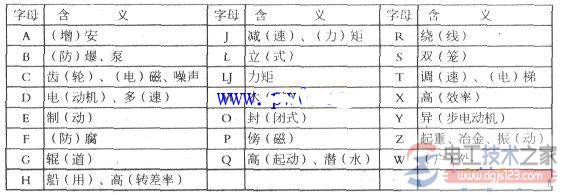 字母 含 义 字母 含 义 字母 含 义
A （增）安 J 减（速）、（力）矩 R 绕（线）
B （防）爆、泵 L 立（式） S 双（笼）
C 齿（轮）、（电）磁、噪声 LJ 力矩 T 调（速）、（电）梯
D 电（动机）、多（速） X 高（效率）
E 制（动） O 封（闭式） Y 异（步电动机）
F （防）腐 P 傍（磁） Z 起重、冶金、振（动）
G 辊（道） Q 高（起动）、潜（水） W
H 船（用）、高（转差率）
www.
电工技术之家
www.dgjs123.com